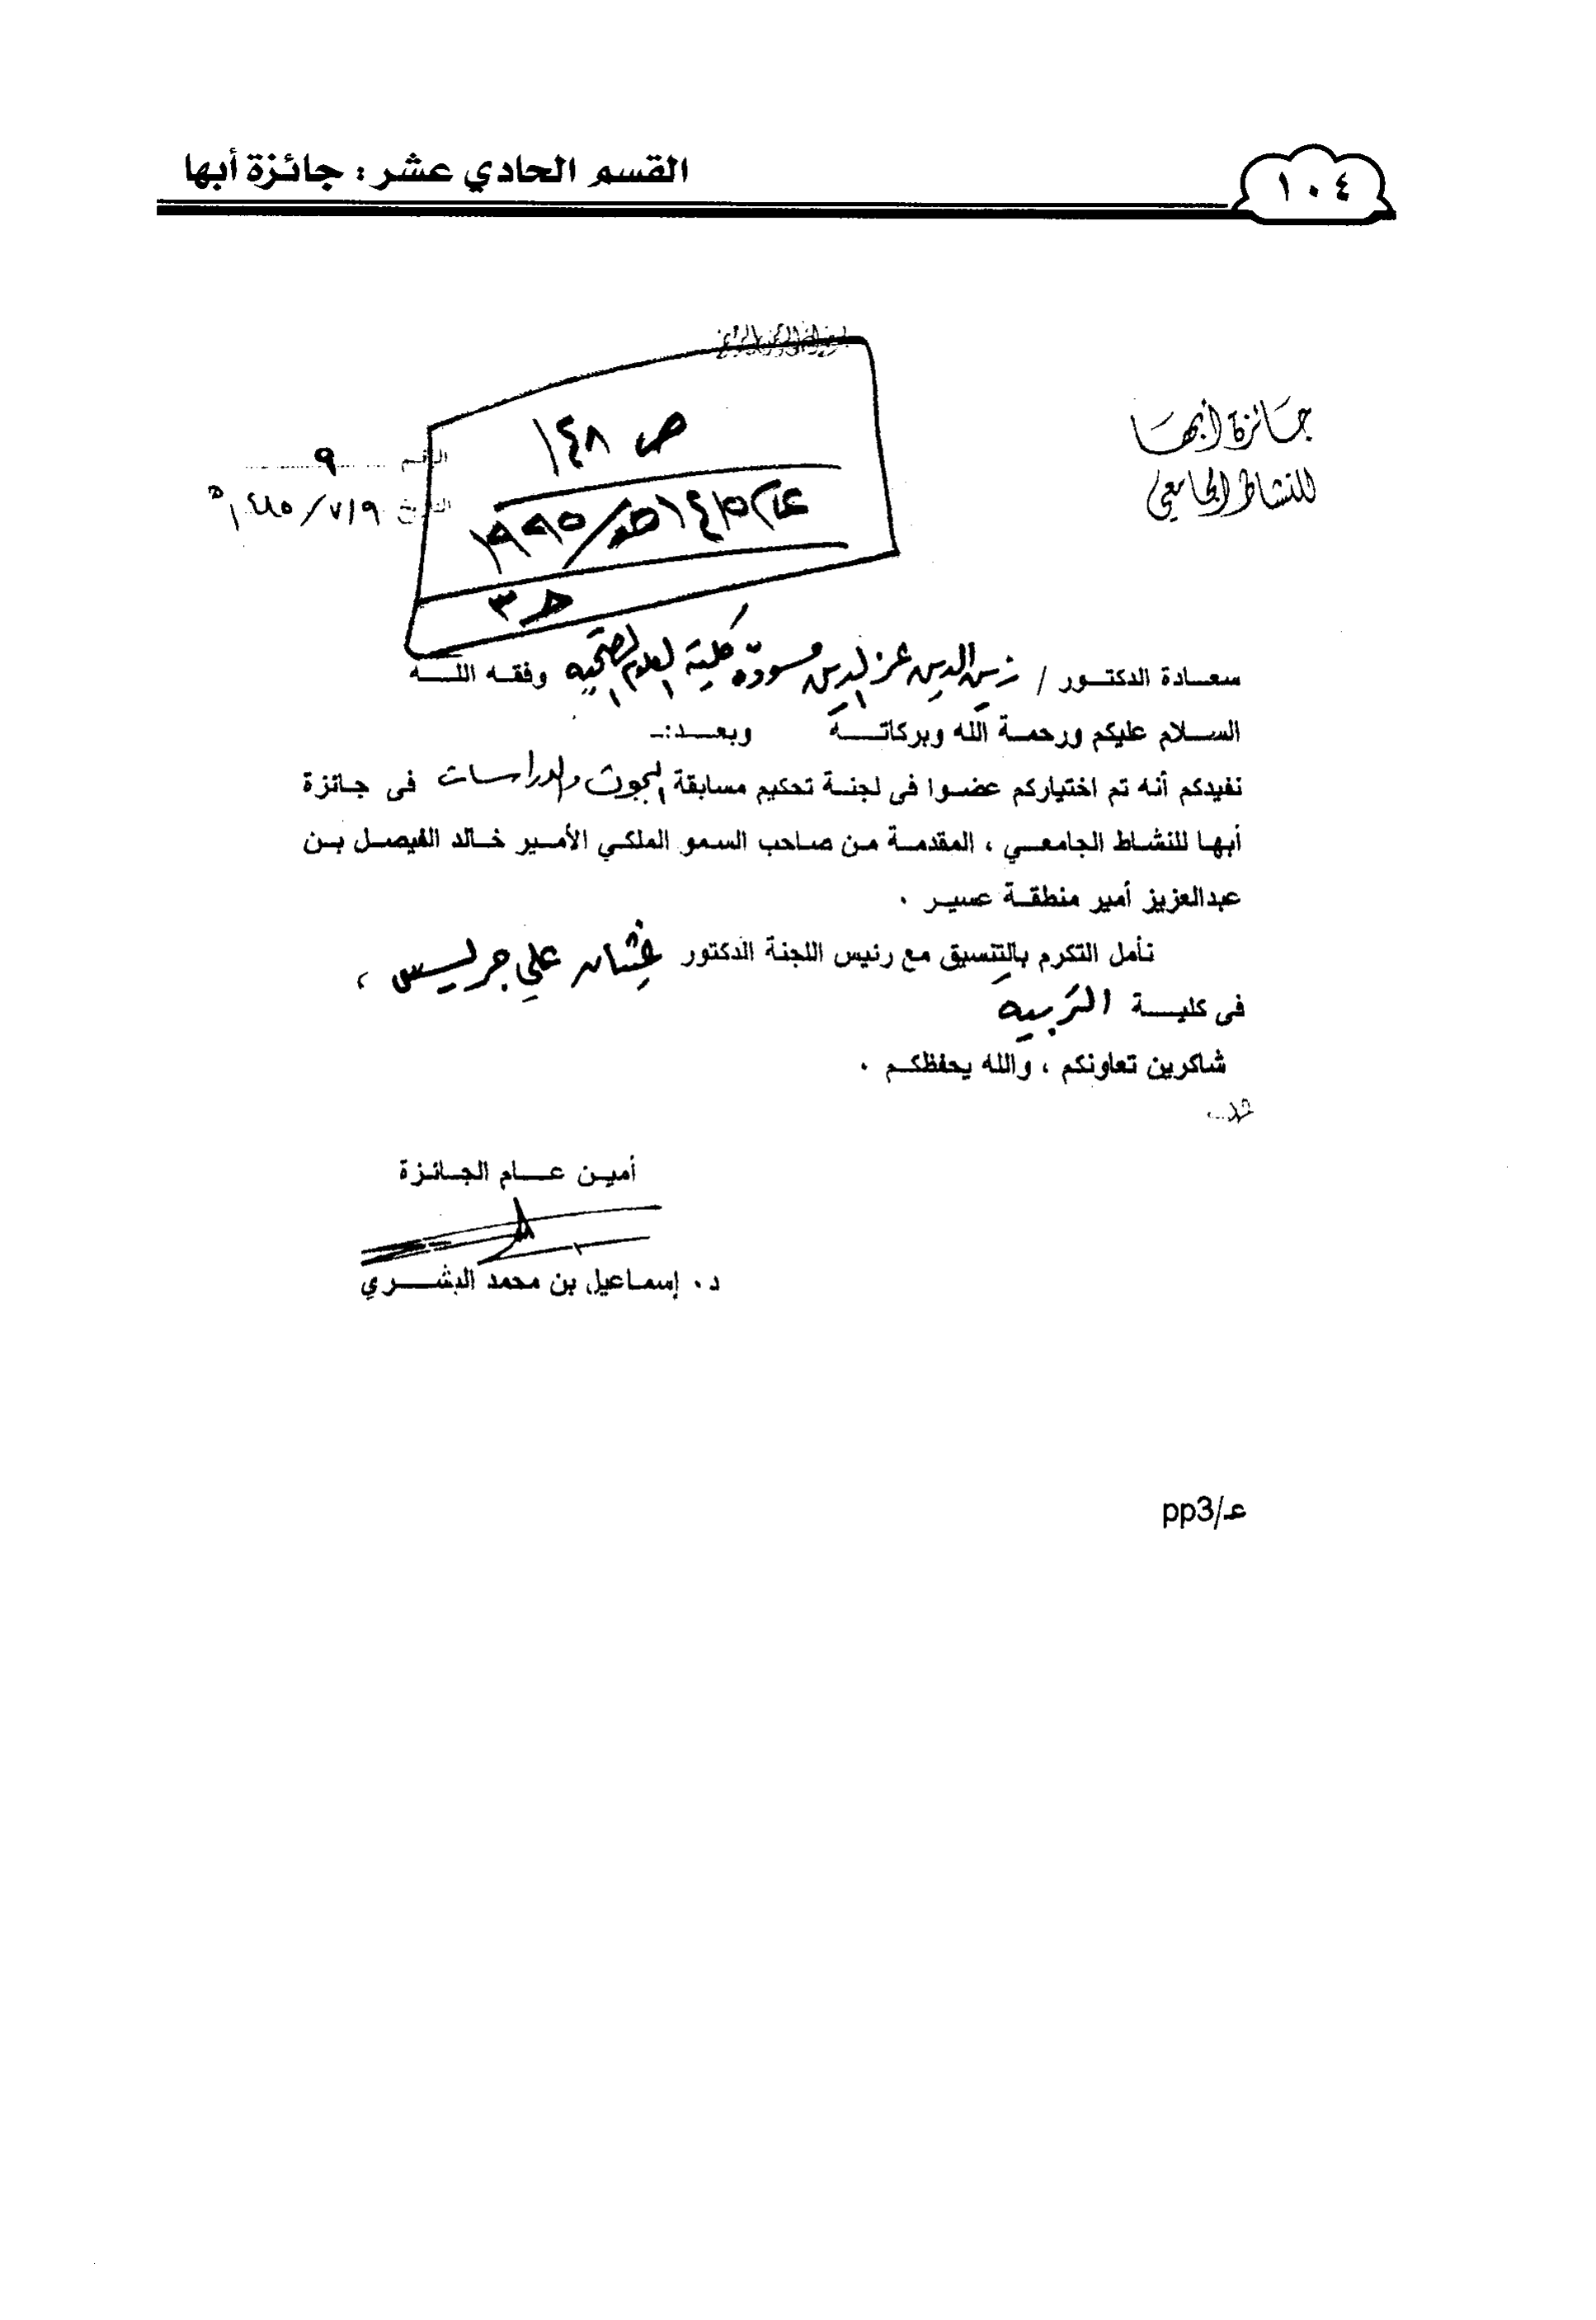 القسم الحادي عشر : جائزة أبها
١٠٤
بسم الله الرحمن الرحيم
جائزة أبها
للنشاط الجامعي
ص ١٤٨
الرقم ٩
التاريخ
ح ٣
سعادة الدكتور / زين الدين عز الدين مسودة كلية العلوم الصحية وفقه الله
السلام عليكم ورحمة الله وبركاته وبعد :-
نفيدكم أنه تم اختياركم عضوا فى لجنة تحكيم مسابقة البحوث والدراسات فى جائزة
أبها للنشاط الجامعي ، المقدمة من صاحب السمو الملكي الأمير خالد الفيصل بن
عبدالعزيز أمير منطقة عسير .
نأمل التكرم بالتنسيق مع رئيس اللجنة الدكتور غيثان علي جريس ،
فى كلية التربية
شاكرين تعاونكم ، والله يحفظكم .
أمين عام الجائزة
د. إسماعيل بن محمد البشري
عـ/pp3